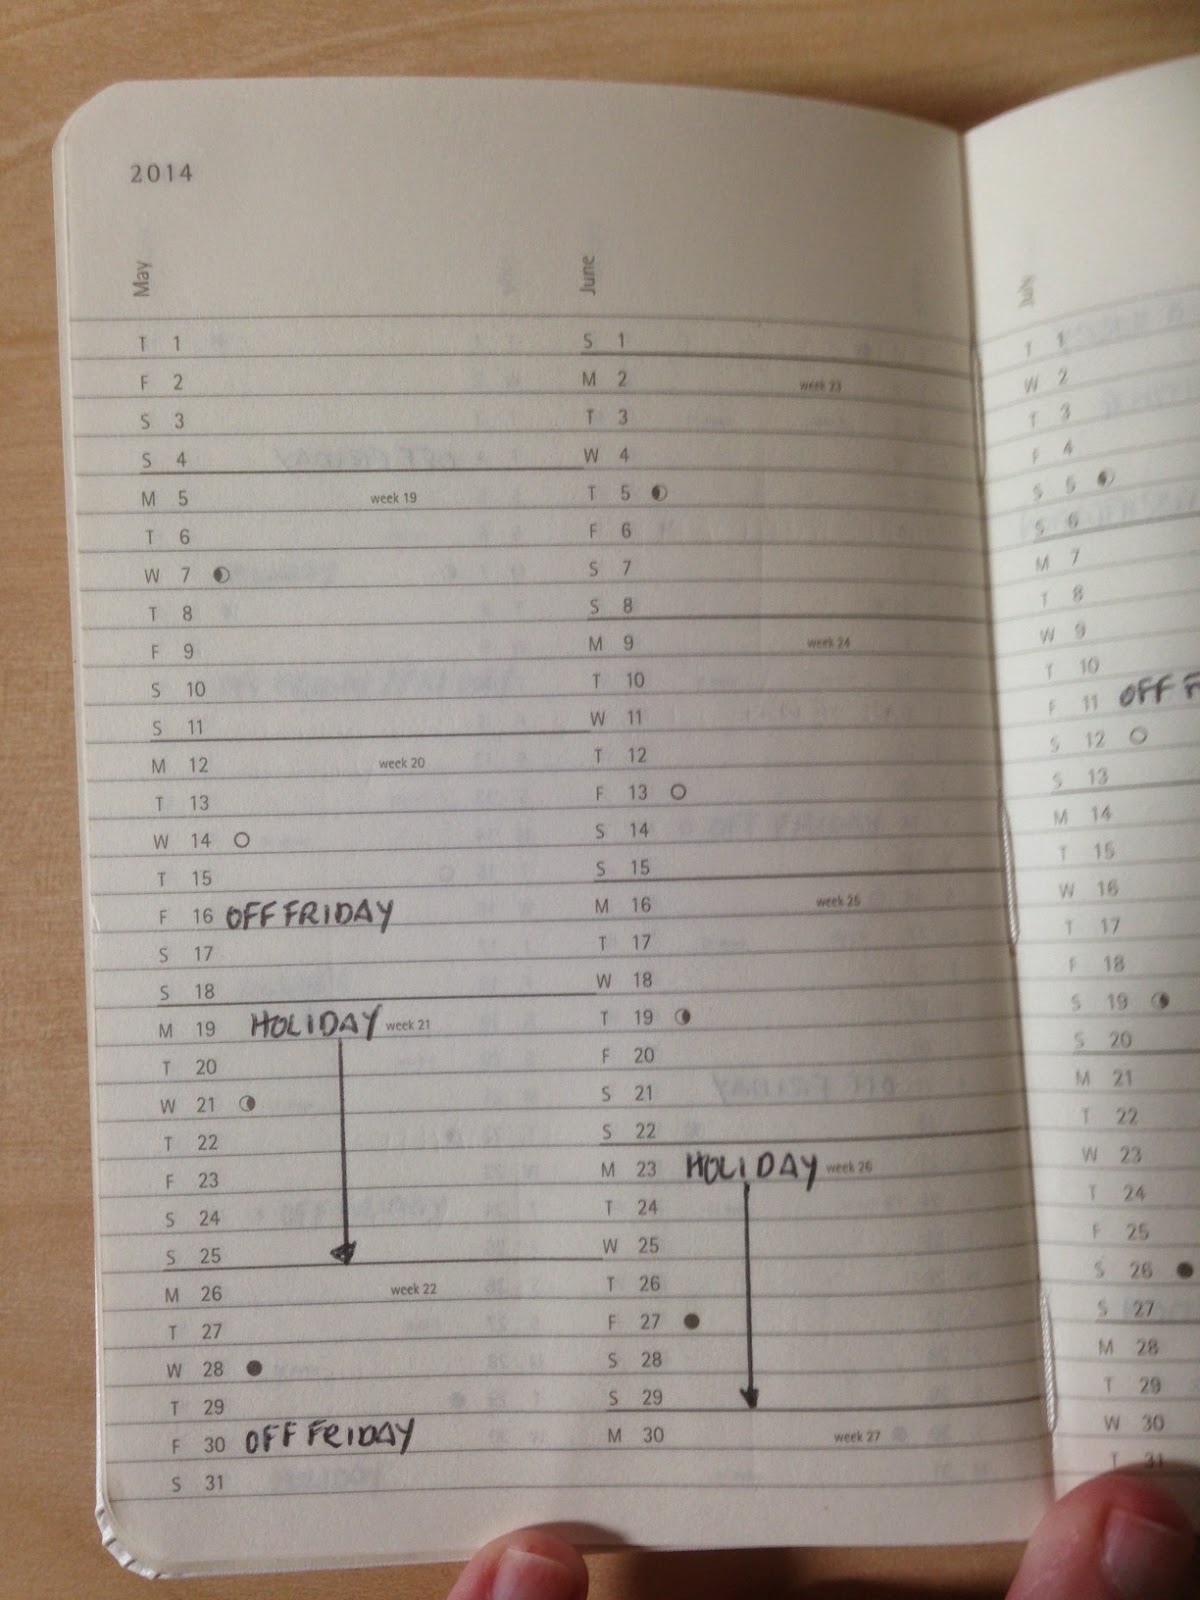 2014
May
T 1
F 2
S 3
S 4
M 5 week 19
T 6
W 7
T 8
F 9
S 10
S 11
M 12 week 20
T 13
W 14
T 15
F 16 OFF FRIDAY
S 17
S 18
M 19 HOLIDAY week 21
T 20
W 21
T 22
F 23
S 24
S 25
M 26 week 22
T 27
W 28
T 29
F 30 OFF FRIDAY
S 31
June
S 1
M 2 week 23
T 3
W 4
T 5
F 6
S 7
S 8
M 9 week 24
T 10
W 11
T 12
F 13
S 14
S 15
M 16 week 25
T 17
W 18
T 19
F 20
S 21
S 22
M 23 HOLIDAY week 26
T 24
W 25
T 26
F 27
S 28
S 29
M 30 week 27
July
T 1
W 2
T 3
F 4
S 5
S 6
M 7
T 8
W 9
T 10
F 11 OFF F
S 12
S 13
M 14
T 15
W 16
T 17
F 18
S 19
S 20
M 21
T 22
W 23
T 24
F 25
S 26
S 27
M 28
T 29
W 30
T 31